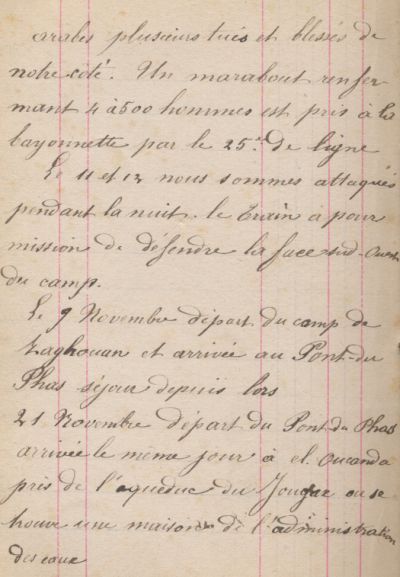 arabes plusieurs tués et blessés de
notre côté. Un marabout renfer
mant 4 à 500 hommes est pris à la
bayonnette par le 25e de ligne
Le 11 et 12 nous sommes attaqués
pendant la nuit. le train a pour
mission de défendre la face sud-Ouest
du camp.
Le 9 Novembre départ du camp de
Zaghouan et arrivée au Pont-du
Phas séjour depuis lors
21 Novembre départ du Pont du Phas
arrivée le même jour à el. Oucanda
près de l'aqueduc du Jougar ou se
trouve une maison de l'administration
des eaux